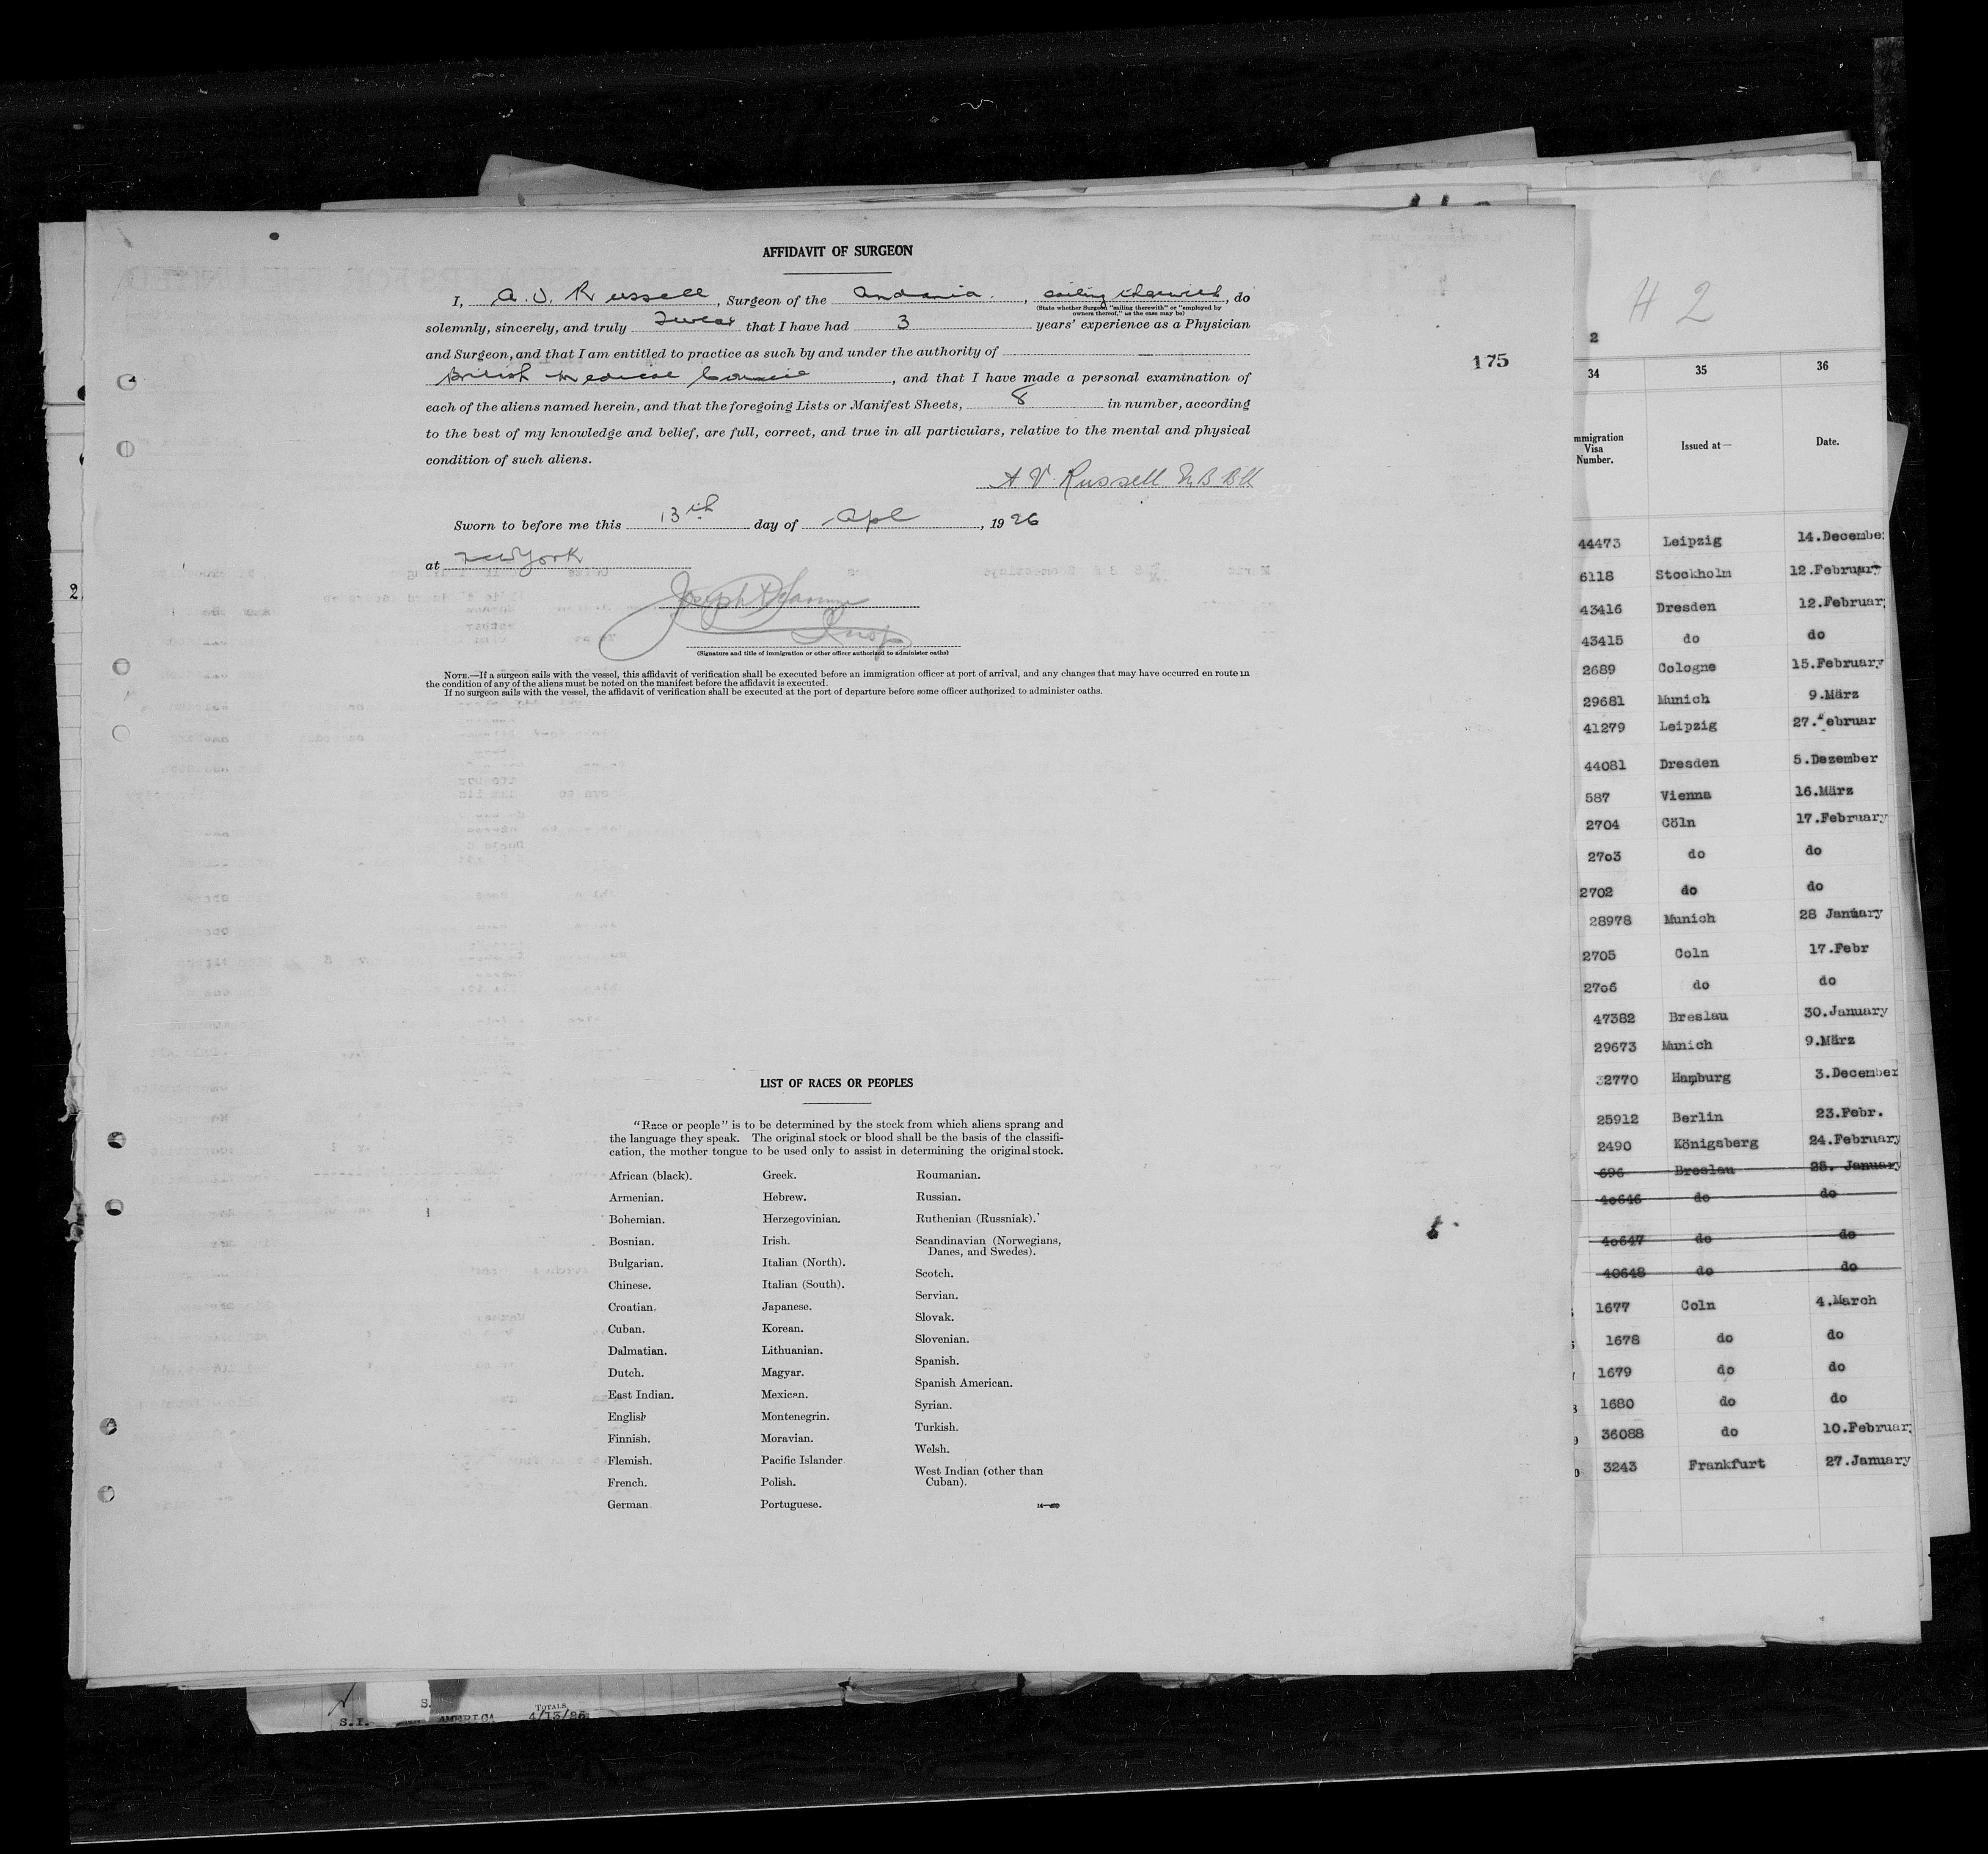 AFFIDAVIT OF SURGEON
I, A. V. Russell, Surgeon of the Andania, sailing therewith, do
(State whether Surgeon "sailing therewith" or "employed by
owners thereof," as the case may be)
solemnly, sincerely, and truly Swear that I have had 3 years' experience as a Physician
and Surgeon, and that I am entitled to practice as such by and under the authority of
British Medical Council, and that I have made a personal examination of
each of the aliens named herein, and that the foregoing Lists or Manifest Sheets, 8 in number, according
to the best of my knowledge and belief, are full, correct, and true in all particulars, relative to the mental and physical
condition of such aliens.
A V. Russell
Sworn to before me this 13th day of Apl, 1926
at New York
Joseph
Insp
(Signature and title of immigration or other officer authorized to administer oaths)
NOTE.—If a surgeon sails with the vessel, this affidavit of verification shall be executed before an immigration officer at port of arrival, and any changes that may have occurred en route in
the condition of any of the aliens must be noted on the manifest before the affidavit is executed.
If no surgeon sails with the vessel, the affidavit of verification shall be executed at the port of departure before some officer authorized to administer oaths.
175
2
LIST OF RACES OR PEOPLES
"Race or people" is to be determined by the stock from which aliens sprang and
the language they speak. The original stock or blood shall be the basis of the classifi-
cation, the mother tongue to be used only to assist in determining the original stock.
African (black).
Armenian.
Bohemian.
Bosnian.
Bulgarian.
Chinese.
Croatian.
Cuban.
Dalmatian.
Dutch.
East Indian.
English
Finnish.
Flemish.
French.
German
Greek.
Hebrew.
Herzegovinian.
Irish.
Italian (North).
Italian (South).
Japanese.
Korean.
Lithuanian.
Magyar.
Mexican.
Montenegrin.
Moravian.
Pacific Islander
Polish.
Portuguese.
Roumanian.
Russian.
Ruthenian (Russniak).
Scandinavian (Norwegians,
Danes, and Swedes).
Scotch.
Servian.
Slovak.
Slovenian.
Spanish.
Spanish American.
Syrian.
Turkish.
Welsh.
West Indian (other than
Cuban).
H 2
2
34 35 36
mmigration
Visa
Number.
Issued at—
Date.
44473 Leipzig 14.Decembe
6118 Stockholm 12.February
43416 Dresden 12.Februar
43415 do do
2689 Cologne 15.February
29681 Munich 9.März
41279 Leipzig 27.Februar
44081 Dresden 5.Dezember
587 Vienna 16.März
2704 Cöln 17.February
2703 do do
2702 do do
28978 Munich 28 January
2705 Coln 17.Febr
2706 do do
47382 Breslau 30.January
29673 Munich 9.März
32770 Hamburg 3.December
25912 Berlin 23.Febr.
2490 Königsberg 24.February
696 Breslau 25. January
40646 do do
40647 do do
40648 do do
1677 Coln 4.March
1678 do do
1679 do do
1680 do do
36088 do 10.Februar
3243 Frankfurt 27.January
S.
TOTALS
S.I. AMERICA 4/13/26